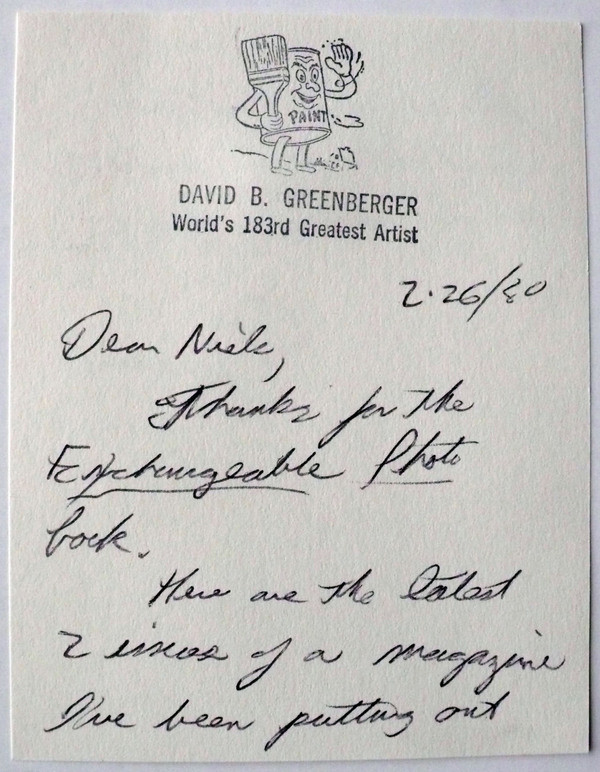 PAINT
DAVID B. GREENBERGER
World's 183rd Greatest Artist
2.26/80
Dear Niels,
Thanks for the
Exchangeable Photo
book.
Here are the latest
2 issues of a magazine
I've been putting out